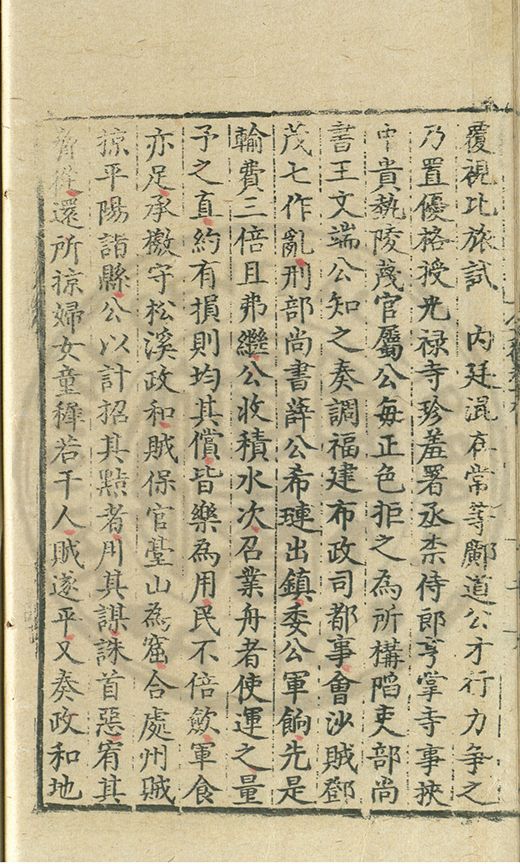 覆視比旅試　内廷混在常等鄺道公才行力争之
乃置優格授光禄寺珍羞署丞柰侍郎亨掌寺事挾
中貴埶陵蔑官屬公每正色拒之為所構䧟吏部尚
書王文端公知之奏調福建布政司都事會沙賊鄧
茂七作亂刑部尚書薛公希璉出鎮委公軍餉先是
輸費三倍且弗繼公收積水次召業舟者使運之量
予之直約有損則均其償皆樂為用民不倍歛軍食
亦足承檄守松溪政和賊保官臺山為窟合處州賊
掠平陽諸縣公以計招其黠者用其謀誅首惡宥其
還所掠婦女童穉若干人賊遂平又奏政和地